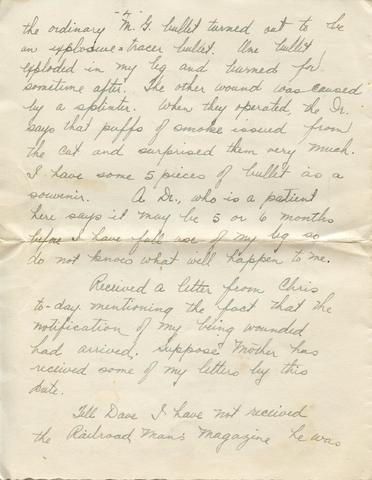 -4-
the ordinary M. G. bullet turned out to be
an explosive & tracer bullet. One bullet
exploded in my leg and burned for
sometime after. The other wound was caused
by a splinter. When they operated, the Dr.
says that puffs of smoke issued from
the cut and surprised them very much.
I have some 5 pieces of bullet as a
souvenir. A Dr., who is a patient
here says it may be 5 or 6 months
before I have full use of my leg so
do not know what will happen to me.
Received a letter from Chris
to-day mentioning the fact that the
notification of my being wounded
had arrived. Suppose Mother has
recived some of my letters by this
date.
Tell Dave I have not recived
the Railroad Man's Magazine he was